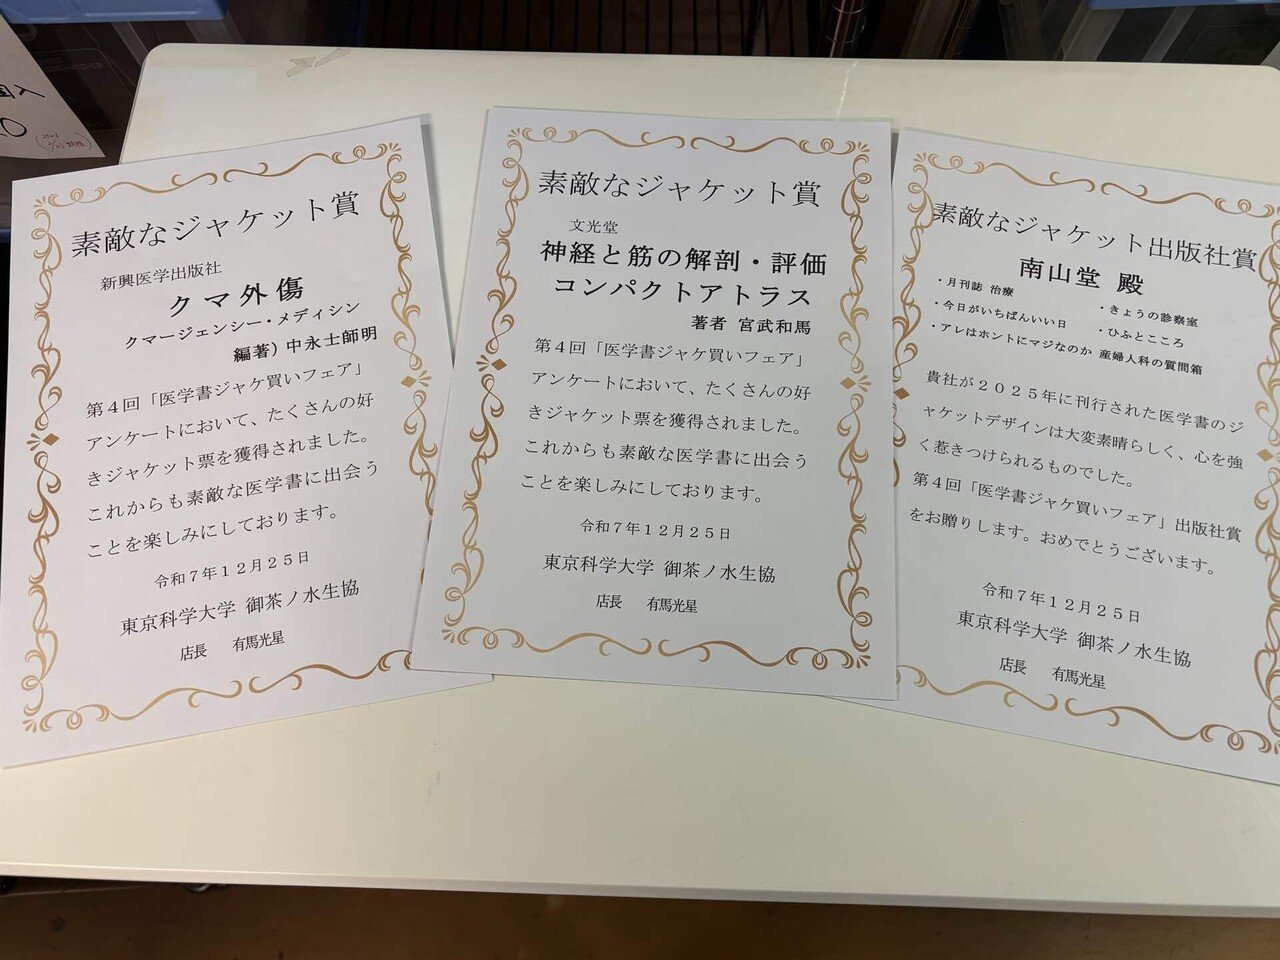 素敵なジャケット賞
新興医学出版社
クマ外傷
クマージェンシー・メディシン
編著）中永士師明
第４回「医学書ジャケ買いフェア」
アンケートにおいて、たくさんの好
きジャケット票を獲得されました。
これからも素敵な医学書に出会う
ことを楽しみにしております。
令和７年１２月２５日
東京科学大学 御茶ノ水生協
店長 有馬光星
素敵なジャケット賞
文光堂
神経と筋の解剖・評価
コンパクトアトラス
著者 宮武和馬
第４回「医学書ジャケ買いフェア」
アンケートにおいて、たくさんの好
きジャケット票を獲得されました。
これからも素敵な医学書に出会う
ことを楽しみにしております。
令和７年１２月２５日
東京科学大学 御茶ノ水生協
店長 有馬光星
素敵なジャケット出版社賞
南山堂 殿
・月刊誌 治療
・きょうの診察室
・今日がいちばんいい日
・ひふとこころ
・アレはホントにマジなのか 産婦人科の質問箱
貴社が２０２５年に刊行された医学書のジ
ャケットデザインは大変素晴らしく、心を強
く惹きつけられるものでした。
第４回「医学書ジャケ買いフェア」出版社賞
をお贈りします。おめでとうございます。
令和７年１２月２５日
東京科学大学 御茶ノ水生協
店長 有馬光星